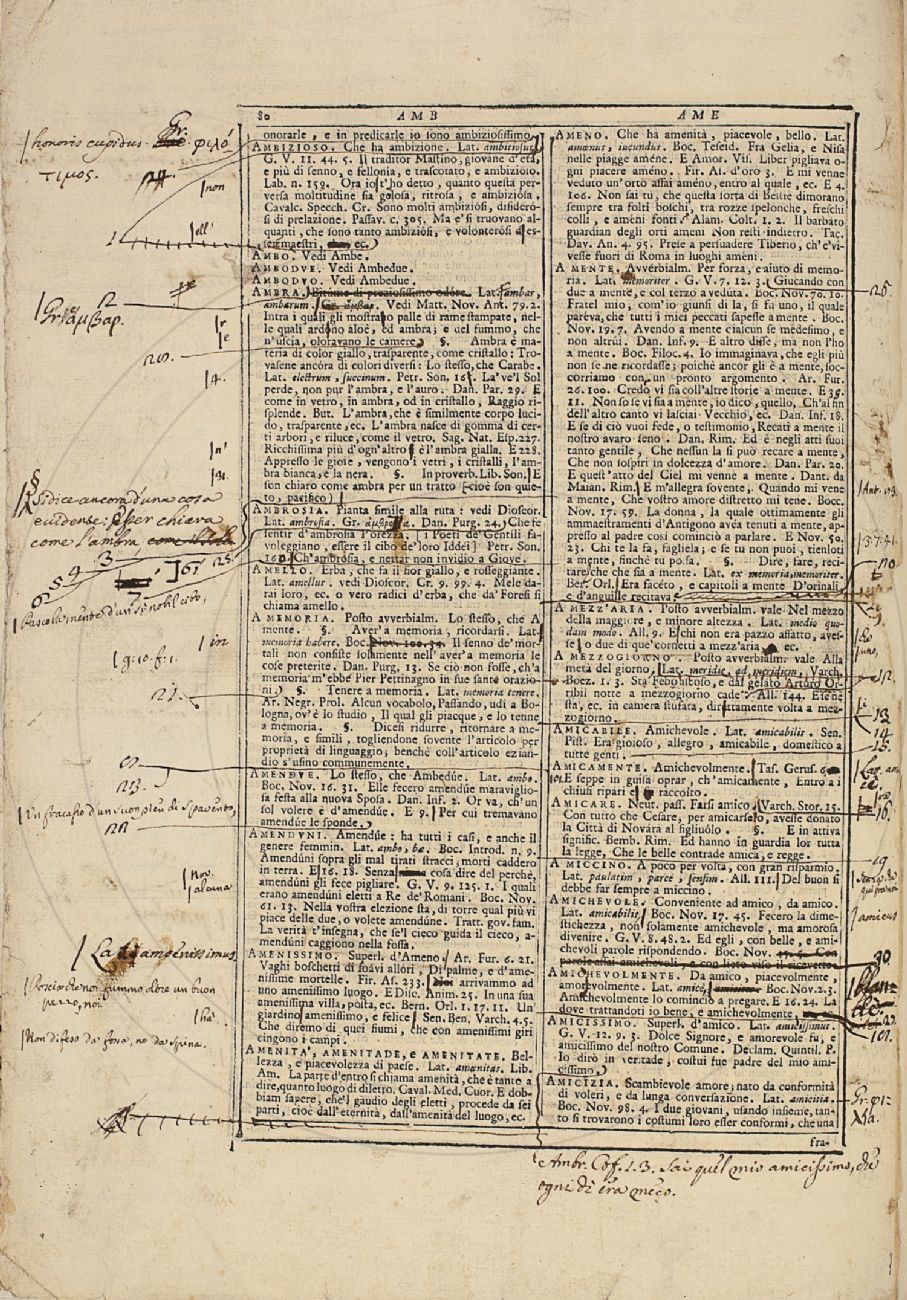 80 AMB AME
onorarle, e in predicarle io sono ambiziosissimo.
AMBIZIOSO. Che ha ambizione. Lat. ambitiosus.
G. V. 11. 44. 5. Il traditor Mastino, giovane d'età,
e più di senno, e fellonia, e trascotato, e ambizioso.
Lab. n. 159. Ora io t'ho detto, quanto questa per-
versa moltitudine sia golosa, ritrosa, e ambiziosa,
Cavalc. Specch. Cr. Sono molti ambiziosi, disiderò-
si di prelazione. Passav. c. 305. Ma e' si truovano al-
quanti, che sono tanto ambiziosi, e volonterosi d'es-
ser maestri, ec.
AMBO. Vedi Ambe.
AMBODUE. Vedi Ambedue.
AMBODUO. Vedi Ambedue.
AMBRA. Bitume di preziosissimo odóre. Lat. ambar,
ambarum. Vedi Matt. Nov. Ant. 79. 2.
Intra i quali gli mostrato palle di rame stampate, nel-
le quali ardono aloè, ed ambra; e del fummo, che
n'uscia, oloravano le camere. §. Ambra è ma-
teria di color giallo, trasparente, come cristallo: Tro-
vasene ancóra di colori diversi: Lo stesso, che Carabe.
Lat. electrum, succinum. Petr. Son. 16. La've'l Sol
perde, non pur l'ambra, e l'auro. Dan. Par. 29. E
come in vetro, in ambra, od in cristallo, Raggio ri-
splende. But. L'ambra, che è similmente corpo luci-
do, trasparente, ec. L'ambra nasce di gomma di cer-
ti arbori, e riluce, come il vetro. Sag. Nat. Esp. 227.
Ricchissima più d'ogn'altro è l'ambra gialla. E 228.
Appresso le gioie, vengono i vetri, i cristalli, l'am-
bra bianca, e la nera. §. In proverb. Lib. Son. E
son chiaro come ambra per un tratto (cioè son quie-
to, pacifico)
AMBROSIA. Pianta simile alla ruta: vedi Dioscor.
Lat. ambrosia. Gr. Dan. Purg. 24. Che fe
sentir d'ambrosia l'orezza. [I Poeti de' Gentili fa-
voleggiano, essere il cibo de' loro Iddei] Petr. Son.
160. Ch'ambrosia, e nettar non invidio a Giove.
AMELLO. Erba, che fa il fior giallo, e rosseggiante.
Lat. amellus. vedi Dioscor. Cr. 9. 99. 4. Mele da-
rai loro, ec. o vero radici d'erba, che da' Foresi si
chiama amello.
A MEMORIA. Posto avverbialm. Lo stesso, che A
mente. §. Aver'a memoria, ricordarsi. Lat.
memoria habere. Boc. Il senno de' mor-
tali non consiste solamente nell'aver'a memoria le
cose preterite. Dan. Purg. 13. Se ciò non fosse, ch'a
memoria m'ebbe Pier Pettinagno in sue sante orazio-
ni. §. Tenere a memoria. Lat. memoria tenere.
Ar. Negr. Prol. Alcun vocabolo, Passando, udì a Bo-
logna, ov'è lo studio, Il qual gli piacque, e lo tenne
a memoria. §. Dicesi ridurre, ritornare a me-
moria, e simili, togliendone sovente l'articolo per
proprietà di linguaggio; benchè coll'articolo ezian-
dio s'usino communemente.
AMENDUE. Lo stesso, che Ambedúe. Lat. ambo.
Boc. Nov. 16. 31. Elle fecero amendúe maraviglio-
sa festa alla nuova Sposa. Dan. Inf. 2. Or va, ch'un
sol volere è d'amendúe. E 9. Per cui tremavano
amendúe le sponde.
AMENDUNI. Amendúe: ha tutti i casi, e anche il
genere femmin. Lat. ambo, bæ. Boc. Introd. n. 9.
Amendúni sopra gli mal tirati stracci, morti caddero
in terra. E 16. 18. Senza cosa dire del perchè,
amendúni gli fece pigliare. G. V. 9. 125. 1. I quali
erano amendúni eletti a Re de' Romani. Boc. Nov.
61. 13. Nella vostra elezione sta, di torre qual più vi
piace delle due, o volete amendúne. Tratt. gov. fam.
La verità t'insegna, che se'l cieco guida il cieco, a-
mendúni caggiono nella fossa.
AMENISSIMO. Superl. d'Ameno. Ar. Fur. 6. 21.
Vaghi boschetti di soávi allóri, Di palme, e d'ame-
nissime mortelle. Fir. As. 233. arrivammo ad
uno amenissimo luogo. E Disc. Anim. 25. In una sua
amenissima villa, posta, ec. Bern. Orl. 1. 17. 11. Un
giardino amenissimo, e felice. Sen. Ben. Varch. 4. 5.
Che diremo di quei fiumi, che con amenissimi giri
cingono i campi.
AMENITA', AMENITADE, e AMENITATE. Bel-
lezza, e piacevolezza di paese. Lat. amœnitas. Lib.
Am. La parte d'entro si chiama amenità, che è tanto a
dire, quanto luogo di diletto. Caval. Med. Cuor. E dob-
biam sapere, che'l gaudio degli eletti, procede da sei
parti, cioè dall'eternità, dall'amenità del luogo, ec.
AMENO. Che ha amenità, piacevole, bello. Lat.
amœnus, iucundus. Boc. Teseid. Fra Gelia, e Nisa
nelle piagge améne. E Amor. Vis. Liber pigliava o-
gni piacere améno. Fir. As. d'oro 3. E mi venne
veduto un'orto assai améno, entro al quale, ec. E 4.
106. Non sai tu, che questa sorta di bestie dimorano
sempre tra folti boschi, tra rozze spelonche, freschi
colli, e améni fonti. Alam. Colt. 1. 2. Il barbato
guardian degli orti ameni Non resti indietro. Tac.
Dav. An. 4. 95. Prese a persuadere Tiberio, ch'e' vi-
vesse fuori di Roma in luoghi améni.
A MENTE. Avverbialm. Per forza, e aiuto di memo-
ria. Lat. memoriter. G. V. 7. 12. 3. Giucando con
due a mente, e col terzo a veduta. Boc. Nov. 70. 10.
Fratel mio, com'io giunsi di la, sì fu uno, il quale
pareva, che tutti i miei peccati sapesse a mente. Boc.
Nov. 19. 7. Avendo a mente ciascun se medesimo, e
non altrúi. Dan. Inf. 9. E altro disse, ma non l'ho
a mente. Boc. Filoc. 4. Io immaginava, che egli più
non se ne ricordasse; poichè ancor gli è a mente, soc-
corriamo con un pronto argomento. Ar. Fur.
26. 100. Credo vi sia coll'altre storie a mente. E 35.
11. Non so se vi sia a mente, io dico, quello, Ch'al fin
dell'altro canto vi lasciai Vecchio, ec. Dan. Inf. 18.
E se di ciò vuoi fede, o testimonio, Recati a mente il
nostro avaro seno. Dan. Rim. Ed è negli atti suoi
tanto gentile, Che nessun la si può recare a mente,
Che non sospiri in dolcezza d'amore. Dan. Par. 20.
E quest'atto del Ciel mi venne a mente. Dant. da
Maian. Rim. E m'allegra sovente, Quando mi vene
a mente, Che vostro amore distretto mi tene. Bocc.
Nov. 17. 59. La donna, la quale ottimamente gli
ammaestramenti d'Antigono avéa tenuti a mente, ap-
presso al padre così cominciò a parlare. E Nov. 50.
23. Chi te la fa, fagliela; e se tu non puoi, tienloti
a mente, finchè tu possa. §. Dire, fare, reci-
tare che che sia a mente. Lat. ex memoria, memoriter.
Ber. Orl. Era facéto, e capitoli a mente D'orinali,
e d'anguille recitava.
A MEZZ'ARIA. Posto avverbialm. vale Nel mezzo
della maggiore, e minore altezza. Lat. medio quo-
dam modo. All. 9. E chi non era pazzo affatto, aves-
se o due di que' cornetti a mezz'aria ec.
A MEZZOGIORNO. Posto avverbialm. vale Alla
metà del giorno. Lat. meridie, ad meridiem. Varch.
Boez. 1. 5. Sta Febo ascoso, e dal gelato Arturo Or-
ribil notte a mezzogiorno cade. All. 144. E se ne
sta, ec. in camera stufata, direttamente volta a mez-
zogiorno.
AMICABILE. Amichevole. Lat. amicabilis. Sen.
Pist. Era gioioso, allegro, amicabile, domestico a
tutte genti.
AMICAMENTE. Amichevolmente. Tas. Gerus. 6.
101. E seppe in guisa oprar, ch'amicamente, Entro a i
chiusi ripari è raccolto.
AMICARE. Neut. pass. Farsi amico. Varch. Stor. 15.
Con tutto che Cesare, per amicarselo, avesse donato
la Città di Novára al figliuólo. §. E in attiva
signific. Bemb. Rim. Ed hanno in guardia lor tutta
la legge, Che le belle contrade amica, e regge.
A MICCINO. A poco per volta, con gran risparmio.
Lat. paulatim, parce, sensim. All. 111. Del buon si
debbe far sempre a miccino.
AMICHEVOLE. Conveniente ad amico, da amico.
Lat. amicabilis. Boc. Nov. 17. 45. Fecero la dime-
stichezza, non solamente amichevole, ma amorosa
divenire. G. V. 8. 48. 2. Ed egli, con belle, e ami-
chevoli parole rispondendo. Boc. Nov. 17. 5. Con
parole assai amichevoli, e con lieto viso il ricevette.
AMICHEVOLMENTE. Da amico, piacevolmente,
amorevolmente. Lat. amicè, Boc. Nov. 2. 3.
Amichevolmente lo cominciò a pregare. E 16. 24. La
dove trattandoti io bene, e amichevolmente,
AMICISSIMO. Superl. d'amico. Lat. amicissimus.
G. V. 12. 9. 3. Dolce Signore, e amorevole fu, e
amicissimo del nostro Comune. Declam. Quintil. P.
Io dirò in veritade, costui fue padre del mio ami-
cissimo.
AMICIZIA. Scambievole amore, nato da conformità
di voleri, e da lunga conversazione. Lat. amicitia.
Boc. Nov. 98. 4. I due giovani, usando insieme, tan-
to si trovarono i costumi loro esser conformi, che una
fra-
honoris cupidus. Gr. φιλό
τιμος.
non
ell'
Gr. αμβαρ.
20.
4.
n'
§
Si dice ancora d'una cosa
evidente: Esser chiara
come l'ambra
6 5 4 3
Pascolo mente d'un sì nobil cibo,
in
g. 10. f. 1.
21.
23.
Un fracasso d'un suon pien di spavento,
22
nov.
alcuna
Lat. amoenissimus
Posciachè noi fummo oltre un buon
pezzo, noi
ha
Non difeso da fossa, nè da spina.
25.
Ant. 103.
37. 41.
10
12.
13
14
15.
16.
19
amicus
30
101.
Gr. φι-
λία.
e Ambr. Cof. 1. 3. Sai quel mio amicissimo, che
ogni dì era meco.